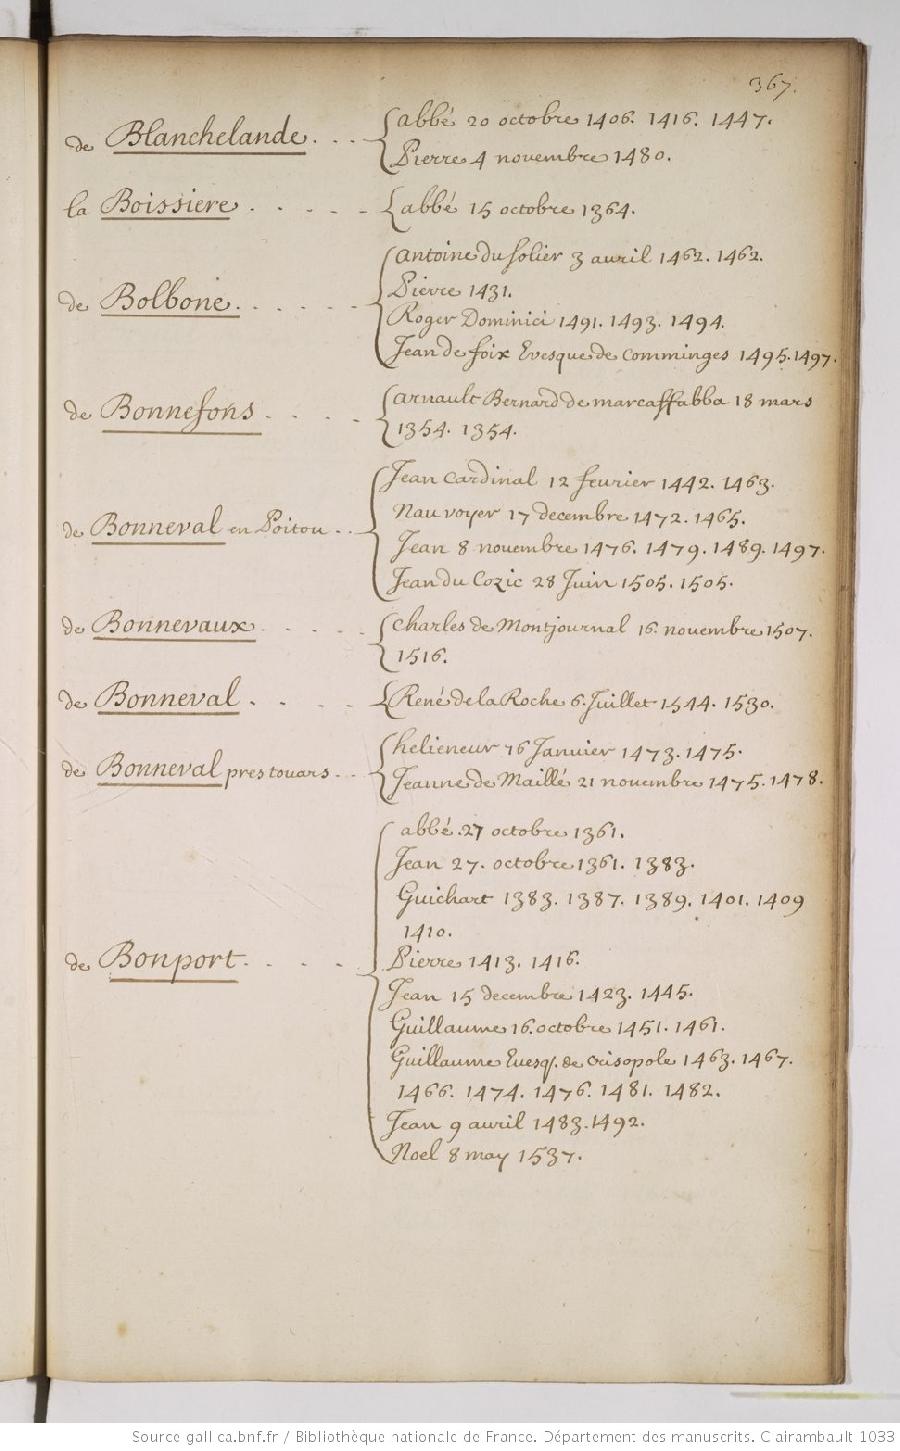 367.
de Blanchelande . . . abbé 20 octobre 1406. 1416. 1447.
Pierre 4 novembre 1480.
la Boissiere . . . . . abbé 15 octobre 1364.
antoine du solier 3 auril 1462. 1462.
Pierre 1431.
de Bolbone . . . . .
Roger Dominici 1491. 1493. 1494.
Jean de foix Evesque de Comminges 1495. 1497.
de Bonnefons . . . . arnault Bernard de marcaffabba 18 mars
1354. 1354.
Jean Cardinal 12 feurier 1442. 1463.
Nau voyer 17 decembre 1472. 1465.
de Bonneval en Poitou . .
Jean 8 novembre 1476. 1479. 1489. 1497.
Jean du Cozic 28 Juin 1505. 1505.
de Bonnevaux . . . . . Charles de Montjournal 16. novembre 1507.
1516.
de Bonneval . . . . . René de la Roche 6. Juillet 1544. 1530.
helieneur 16 Janvier 1473. 1475.
de Bonneval pres touars . .
Jeanne de Maillé 21 novembre 1475. 1478.
abbé .27 octobre 1361.
Jean 27. octobre 1361. 1383.
Guichart 1383. 1387. 1389. 1401. 1409
1410.
de Bonport . . . . . Pierre 1413. 1416.
Jean 15 decembre 1423. 1445.
Guillaume 16. octobre 1451. 1461.
Guillaume Euesq. de Crisopole 1463. 1467.
1466. 1474. 1476. 1481. 1482.
Jean 9 auril 1483. 1492.
Noel 8 may 1537.
Source gallica.bnf.fr / Bibliothèque nationale de France. Département des manuscrits. Clairambault 1033